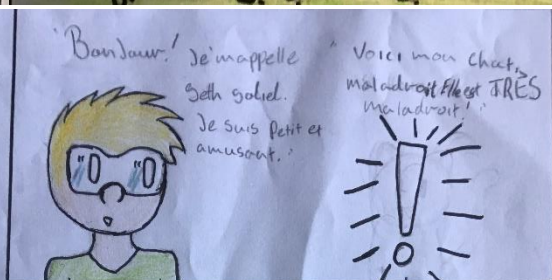 "Bonjour! Je m'appelle
Seth soliel.
Je suis Petit et
amusant."
"Voici mon chat,
maladroit Elle est TRÈS
maladroit!"
!